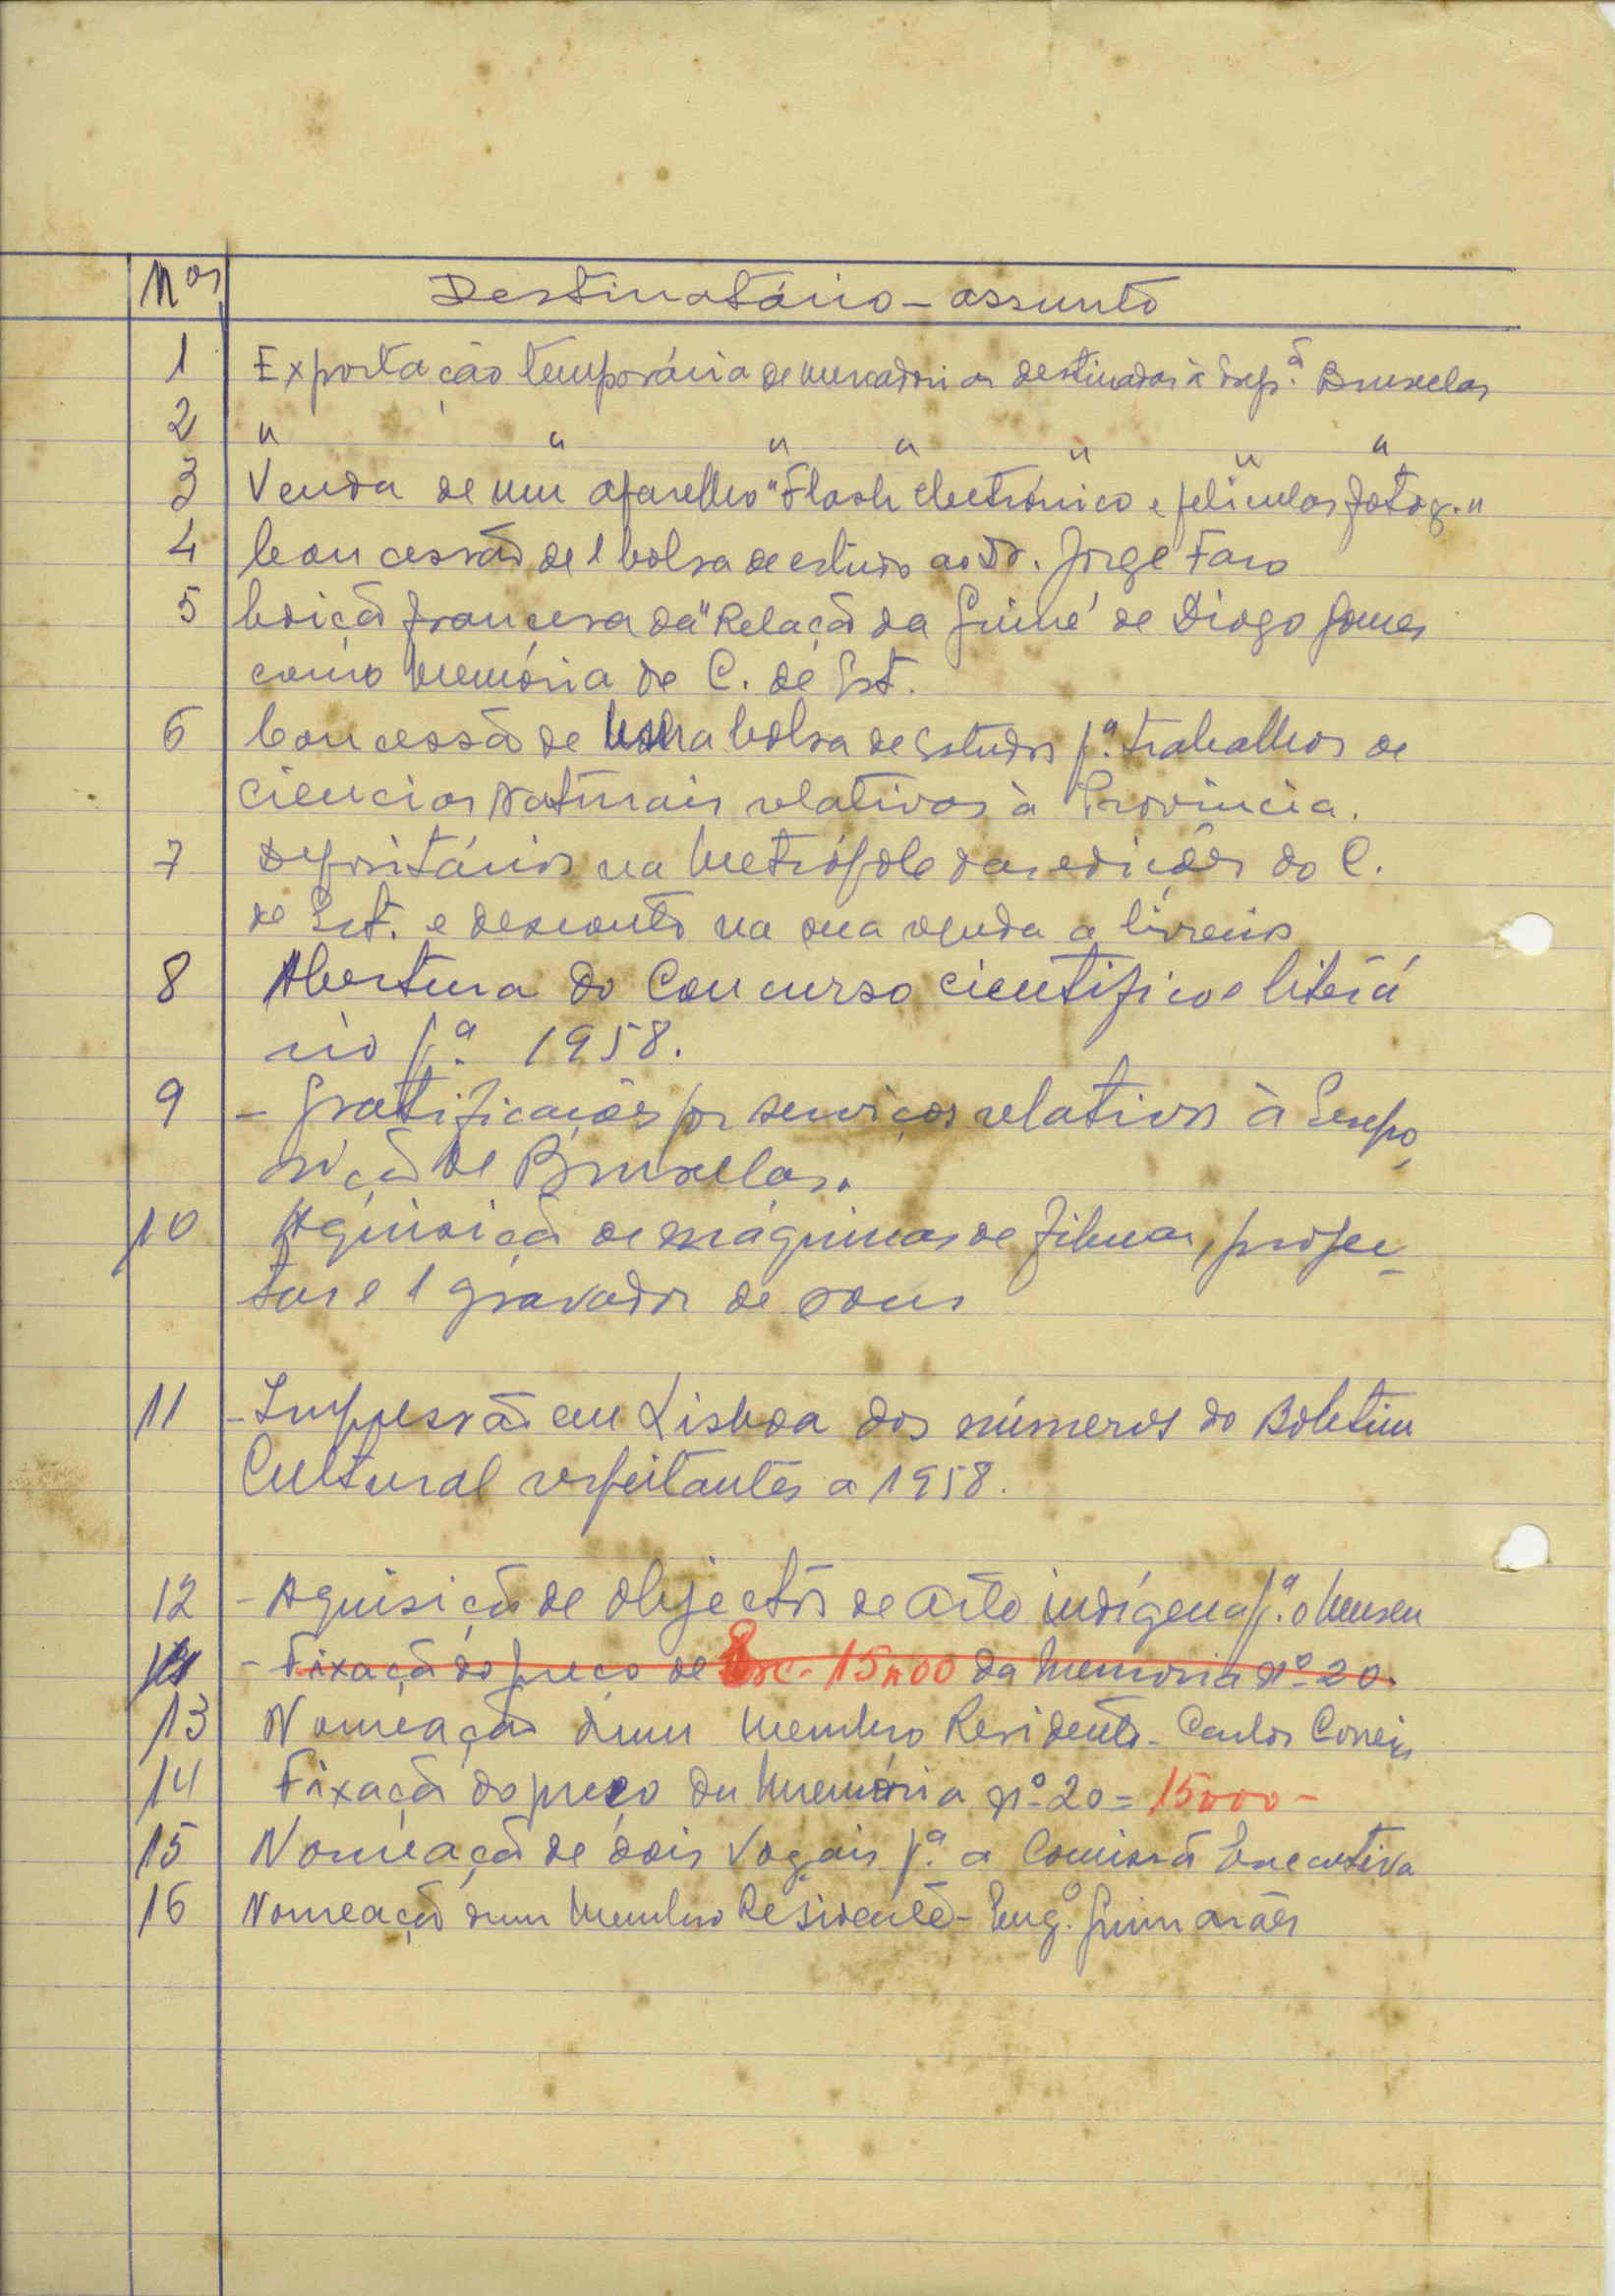 Nos Destinatário - assunto
1 Exportação temporária de mercadorias destinadas à Exp.ª Bruxelas
2 " " " " " " "
3 Venda de um aparelho "Flash electrónico e películas fotog."
4 Concessão de 1 bolsa de estudo ao Dr. Jorge Faro
5 Edição francesa da "Relação da Guiné" de Diogo Gomes
como memória de C. de Est.
6 Concessão de bolsa de Estudos p.ª trabalhos de
Ciencias Naturais relativos à Província.
7 Depositários na Metrópole das edições do C.
de Est. e desconto na sua venda a livreiros
8 Abertura do Concurso cientifico e literá
rio p.ª 1958.
9 - Gratificações por serviços relativos à Expo
sição de Bruxelas.
10 Aquisição de máquinas de filmar, projec-
tar e 1 gravador de sons
11 - Impressão em Lisboa dos números do Boletim
Cultural respeitantes a 1958.
12 - Aquisição de objectos de arte indígena p.ª o Museu
- Fixação do preço de Esc. 15$00 da Memoria nº 20.
13 Nomeação dum Membro Residente - Carlos Correia
14 Fixação do preço da Memória nº 20 = 15$00 -
15 Nomeação de dois Vogais p.ª a Comissão Executiva
16 Nomeação dum Membro Residente - Eng.º Guimarães